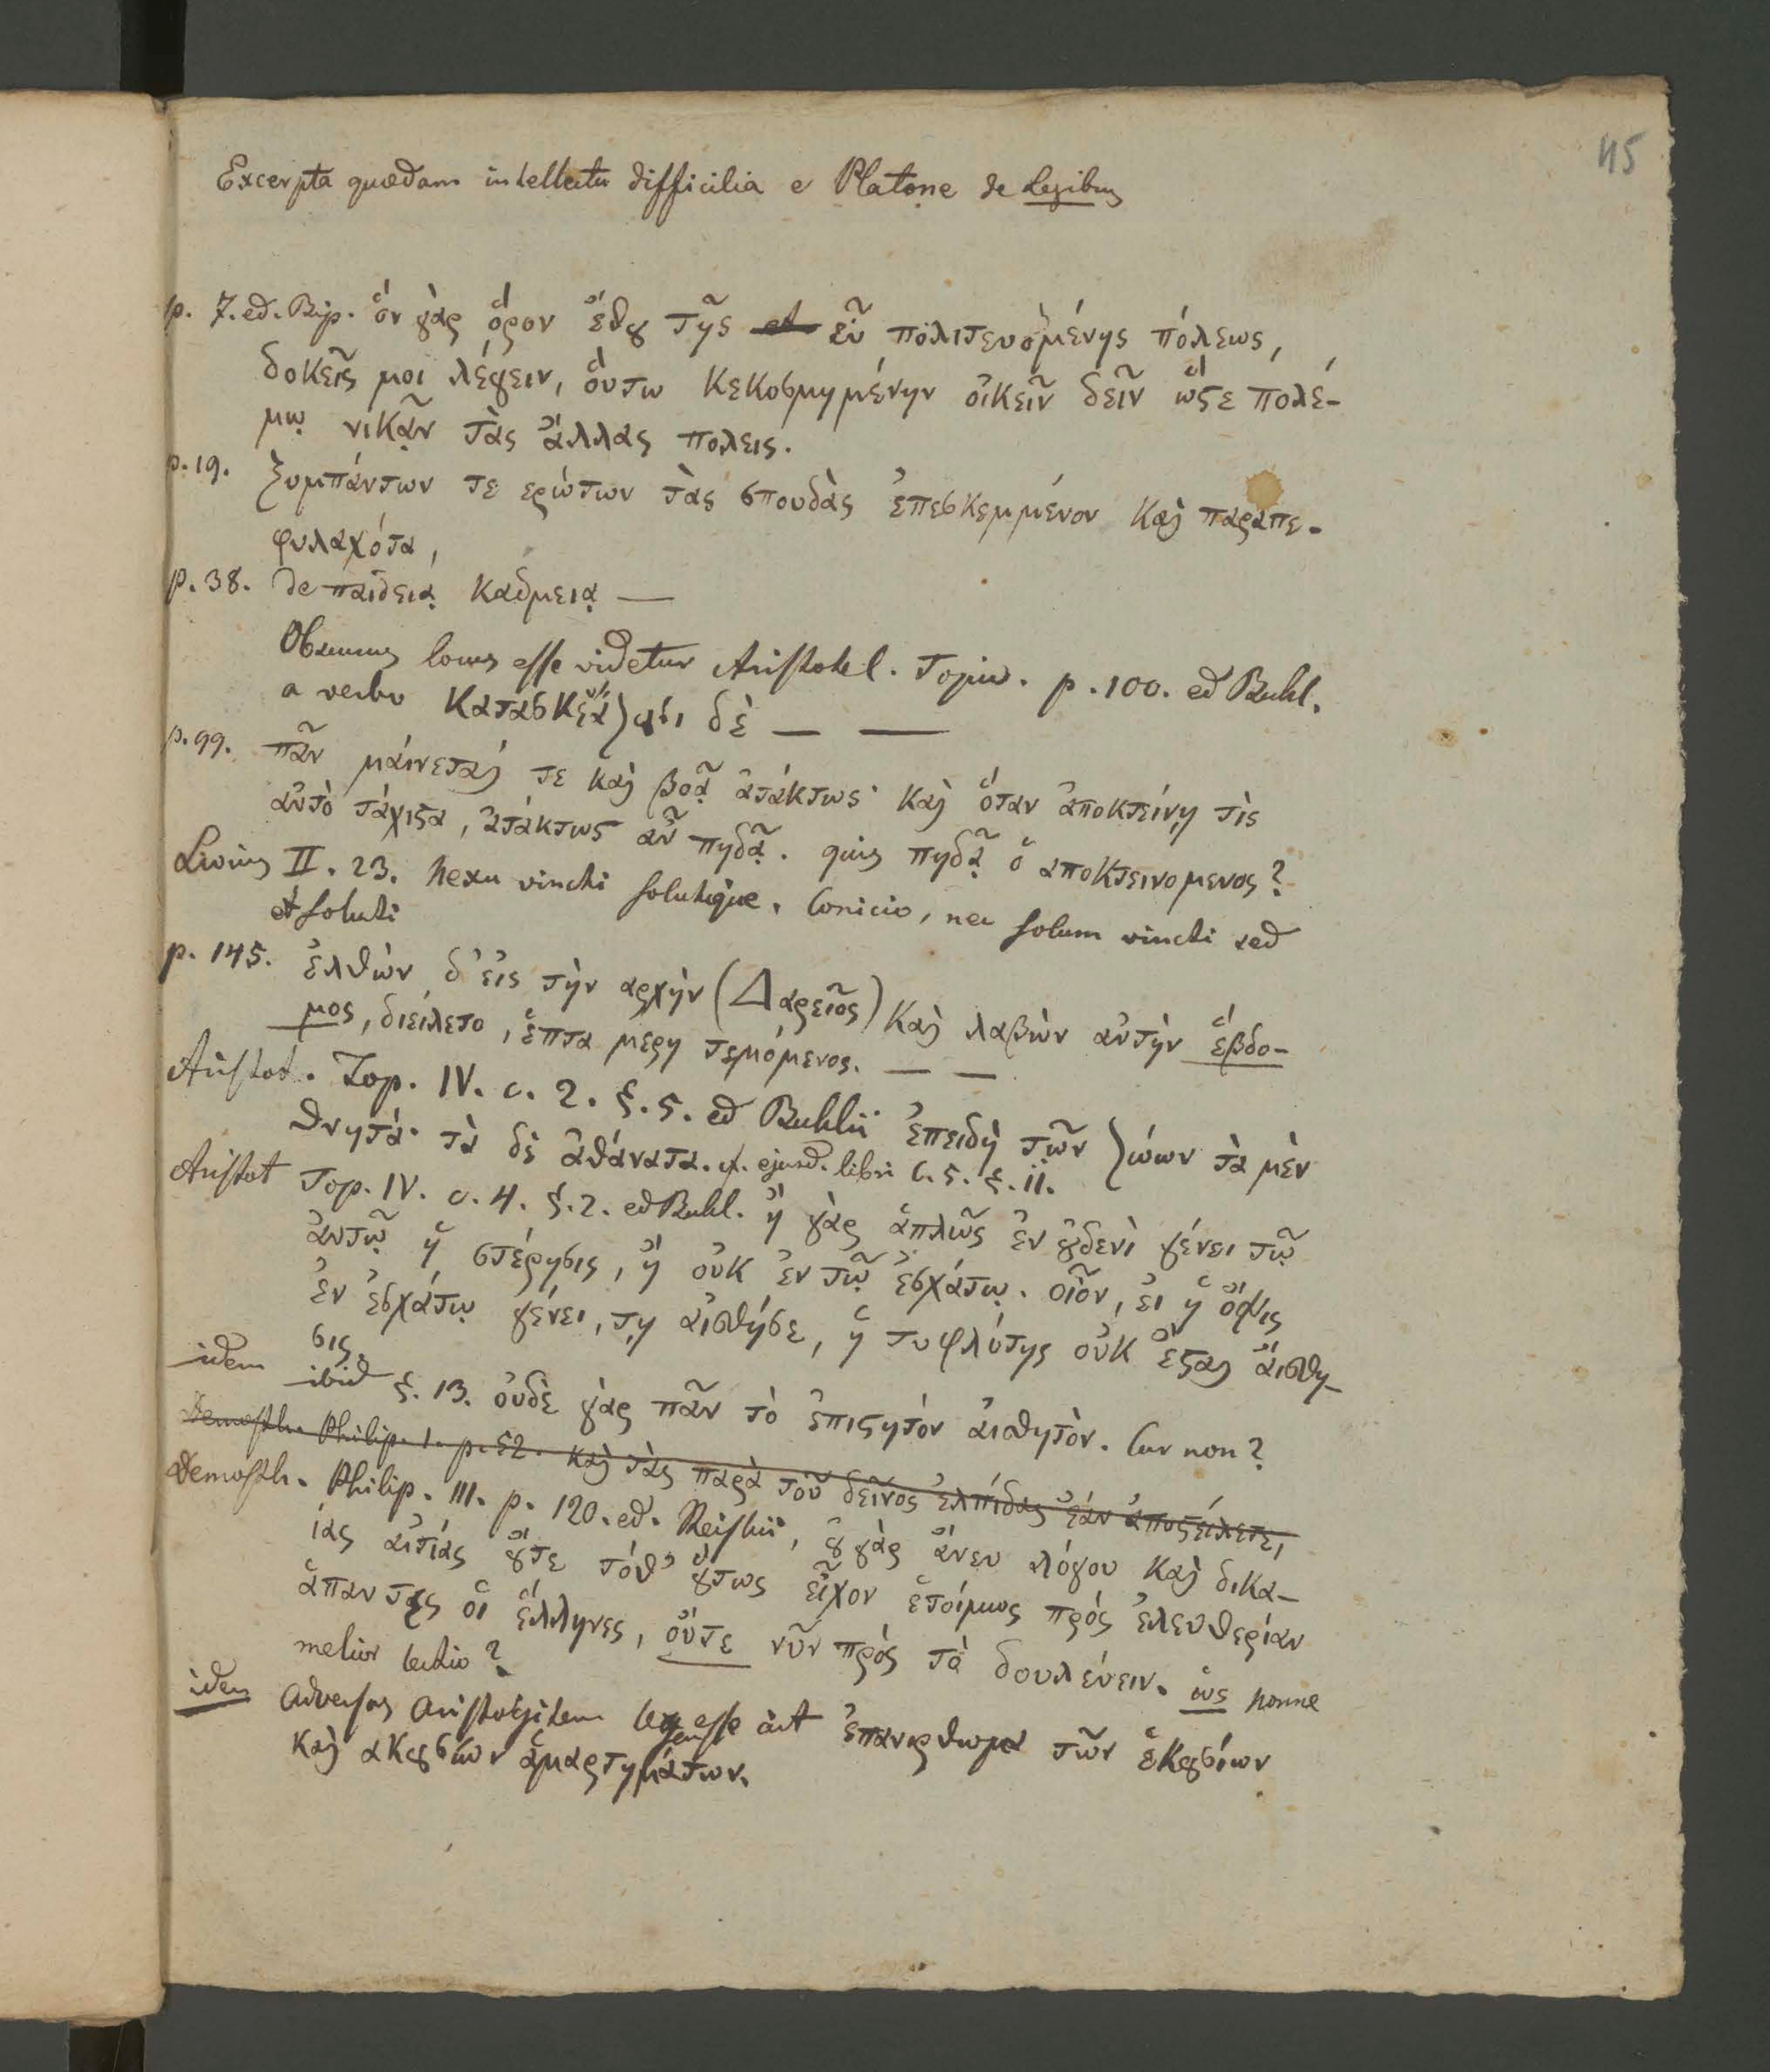 45
Excerpta quædam intellectu difficilia e Platone de Legibus
p. 7. ed. Bip. ὅν γὰρ ὅρον ἔθȣ τῆς et εὖ πολιτευομένης πόλεως,
δοκεῖς μοι λέγειν, ὅυτω κεκοσμημένην οἰκεῖν δεῖν ὥϛε πολέ-
μῳ νικᾷν τὰς ἄλλας πολεις.
p. 19. ξυμπάντων τε ερώτων τὰς σπουδὰς ἐπεσκεμμένον καὶ παραπε-
φυλαχότα,
p. 38. de παιδειᾳ Καδμειᾳ —
Obscurus locus esse videtur Aristotel. Topic. p. 100. ed Buhl.
a verbo κατασκευάζωσι δὲ — —
p. 99. πᾶν μάινεταί τε καὶ βοᾷ ἀτάκτως· καὶ ὅταν ἀποκτείνῃ τὶς
αὐτὸ τάχιϛα, ἀτάκτως αὖ πηδᾷ. quis πηδᾷ ὁ αποκτεινομενος?
Livius II. 23. nexu vincti solutique. Conicio, nec solum vincti sed
et soluti
p. 145. ἐλθὼν δ᾽ εἰς τὴν αρχὴν (Δαρεῖος) καὶ λαβὼν αὐτὴν ἕβδο-
μος, διείλετο, ἕπτα μερη τεμόμενος. — —
Aristot. Top. IV. c. 2. §. 5. ed Buhlii ἐπειδὴ τῶν ζώων τὰ μὲν
θνητά· τὰ δὲ ἀθάνατα. cf. ejusd. libri c. 5. §. 11.
Aristot Top. IV. c. 4. §. 2. ed Buhl. ἢ γὰρ ἁπλῶς ἐν ȣδενὶ γένει τῷ
ἀυτῷ ἡ στέρησις, ἢ οὐκ ἐν τῷ ἐσχάτῳ. οἷον, ἐι ἡ ὄψις
ἐν ἐσχάτῳ γένει, τῃ αἰσθήσε, ἡ τυφλότης οὐκ ἔϛαι ἄισθη-
σις.
idem ibid §. 13. οὐδὲ γὰρ πᾶν τὸ ἐπιϛητόν ἀισθητὸν. Cur non?
Demosth. Philip. 1. p. 52. καὶ τὰς παρὰ τοῦ δεῖνος ἐλπίδας ἐάν ἀποϛείλετε,
Demosth. Philip. III. p. 120. ed. Reiskii, ȣ γὰρ ἄνευ λόγου καὶ δικα-
ίας αἰτίας ȣτε τόθ᾽ ȣτως εἶχον ἑτοίμως πρός ἐλευθερίαν
ἅπαντες οἱ ἕλληνες, οὔτε νῦν πρὸς τὸ δουλέυειν. ὡς nonne
melior lectio?
idem adversus Aristogitem leges esse ait ἐπανορθωμα τῶν ἑκȣσίων
καὶ ακȣσίων ἁμαρτημάτων.